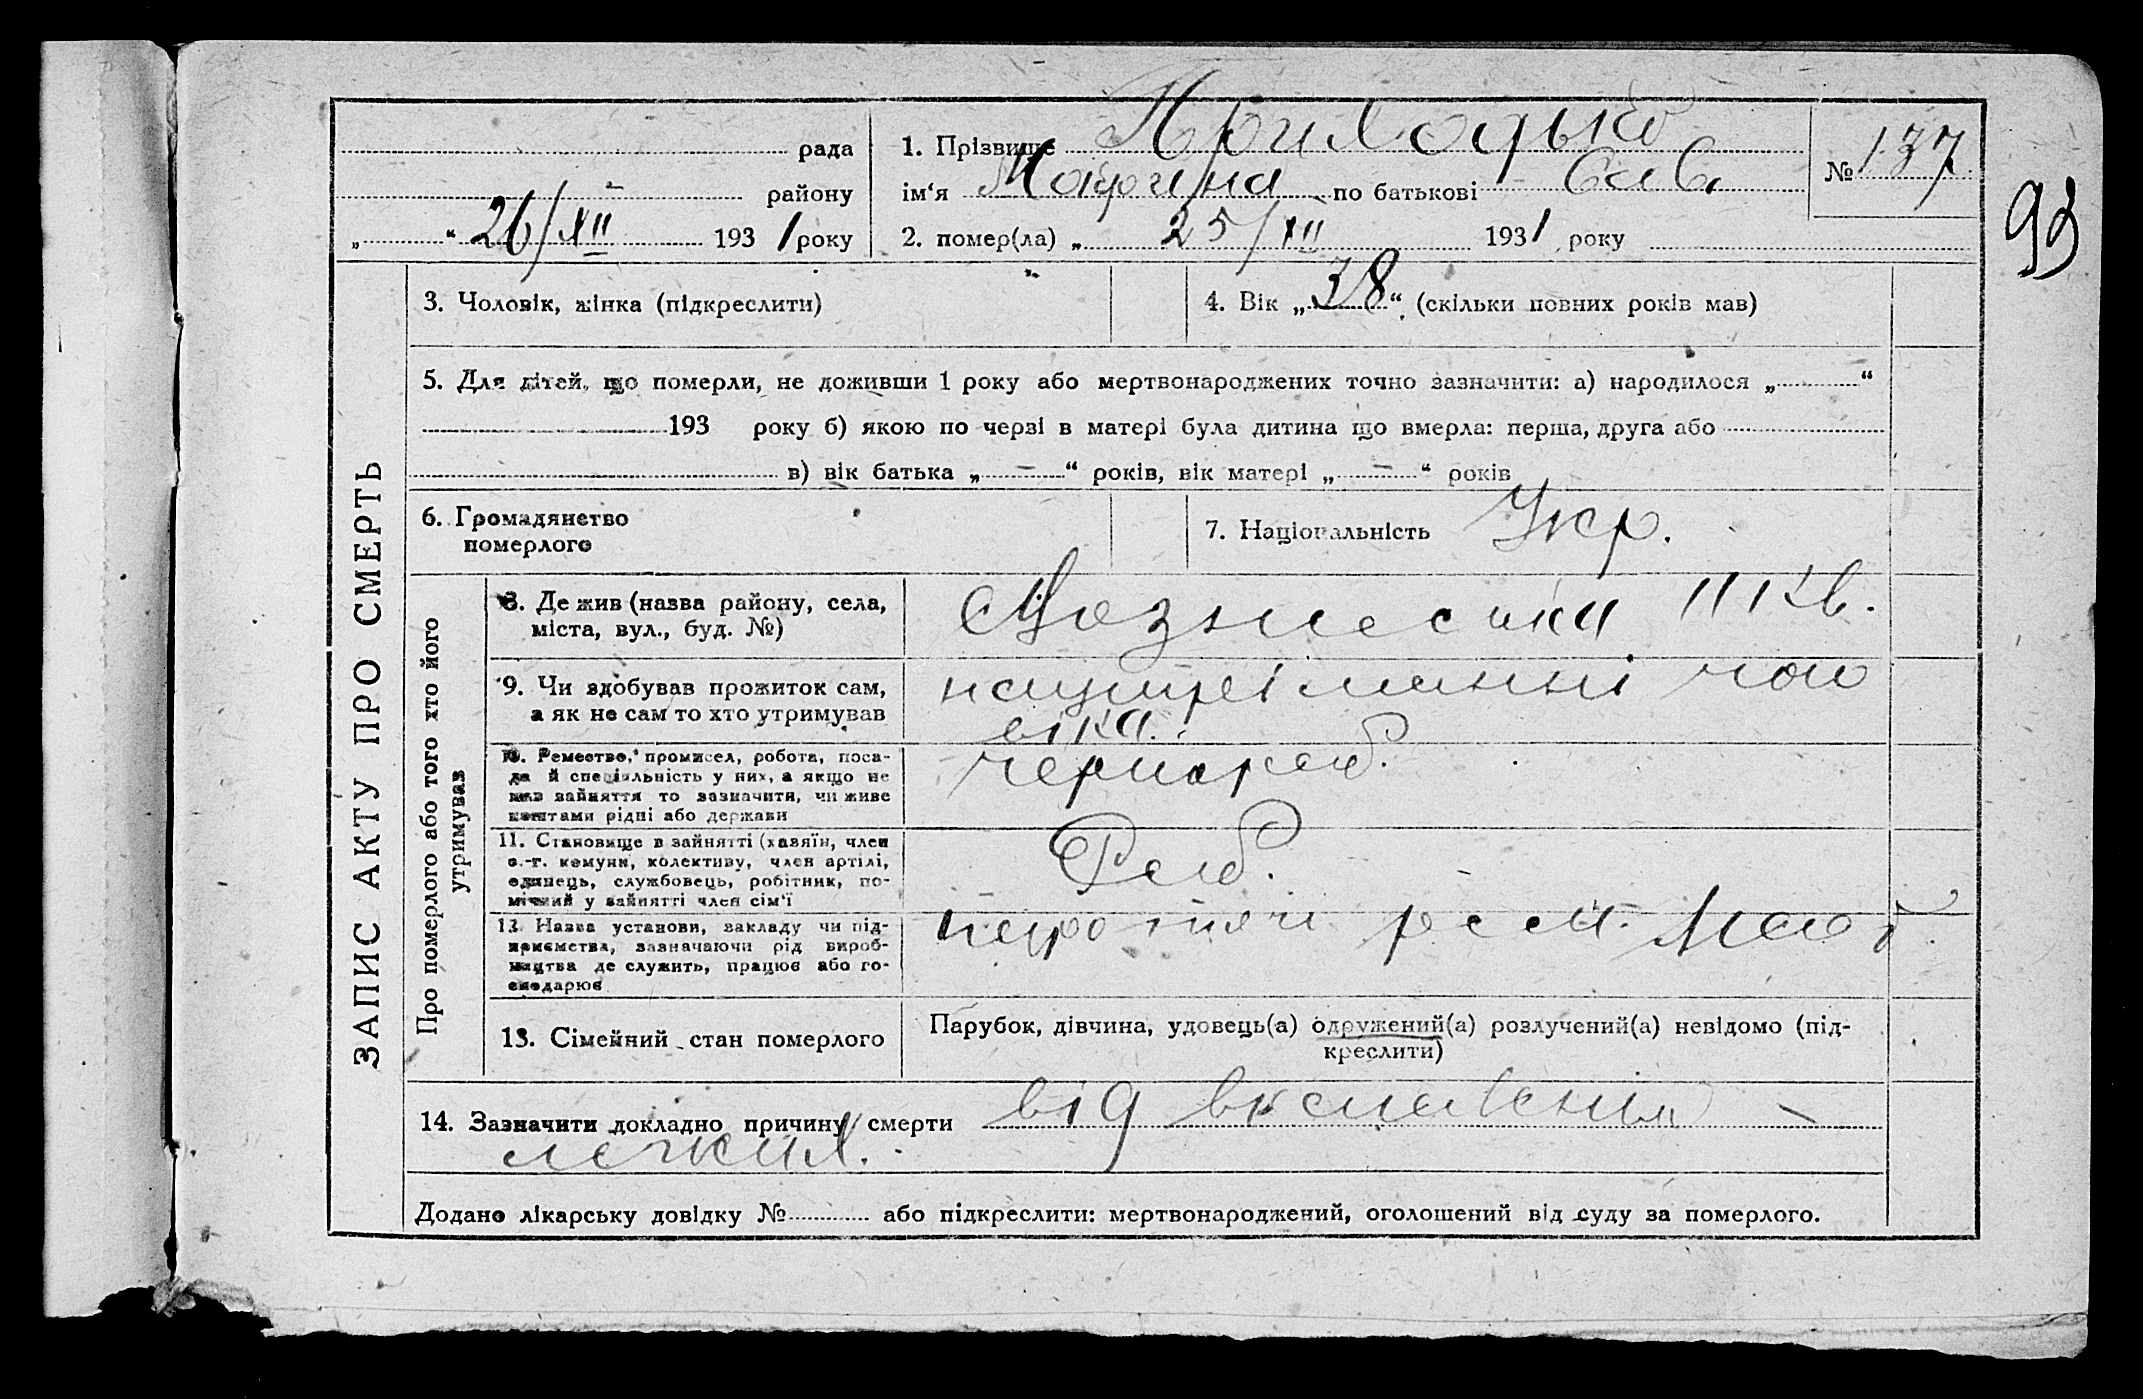 рада
району
„ “ 26/XII 1931 року
1. Прізвище Приходько
ім‘я по батькові Сав.
2. помер(ла) „ 25/XII 1931 року
№ 137
93
ЗАПИС АКТУ ПРО СМЕРТЬ
3. Чоловік, жінка (підкреслити)
4. Вік „38“ (скільки повних років мав)
5. Для дітей, що померли, не доживши 1 року або мертвонароджених точно зазначити: а) народилося „ “
193 року б) якою по черзі в матері була дитина що вмерла: перша, друга або
в) вік батька „ – “ років, вік матері „ – “ років
6. Громадянство
померлого
7. Національність Укр.
Про померлого або того хто його
утримував
8. Де жив (назва району, села,
міста, вул., буд. №)
Вознесенка III кв.
9. Чи здобував прожиток сам,
а як не сам то хто утримував
на утріманні чоло
віка.
10. Ремество, промисел, робота, поса-
да й спеціяльність у них, а якщо не
мав зайняття то зазначити, чи живе
коштами рідні або держави
чернороб.
11. Становище в зайнятті (хазяїн, член
с.-г. комуни, колективу, член артілі,
одинець, службовець, робітник, по-
мічний у зайнятті член сім'ї
Роб.
12. Назва установи, закладу чи під-
приємства, зазначаючи рід вироб-
ництва де служить, працює або го-
сподарює
рем.
13. Сімейний стан померлого
Парубок, дівчина, удовець(а) одружений(а) розлучений(а) невідомо (під-
креслити)
14. Зазначити докладно причину смерти від вспалення
легких.
Додано лікарську довідку № або підкреслити: мертвонароджений, оголошений від суду за померлого.